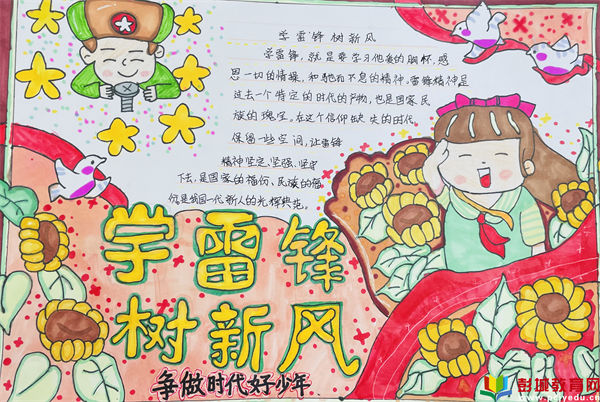 学雷锋树新风
学雷锋，就是要学习他爱的胸怀，感
恩一切的情操，和驰而不息的精神。雷锋精神是
过去一个特定的时代的产物，也是国家、民
族的瑰宝。在这个信仰缺失的时代
保留一些空间，让雷锋
精神坚定、坚强、坚守
下去，是国家的福份、民族的福
份，是我国一代新人的光辉典范。
学雷锋
树新风
争做时代好少年
彭城教育网
www.pcjyedu.cn